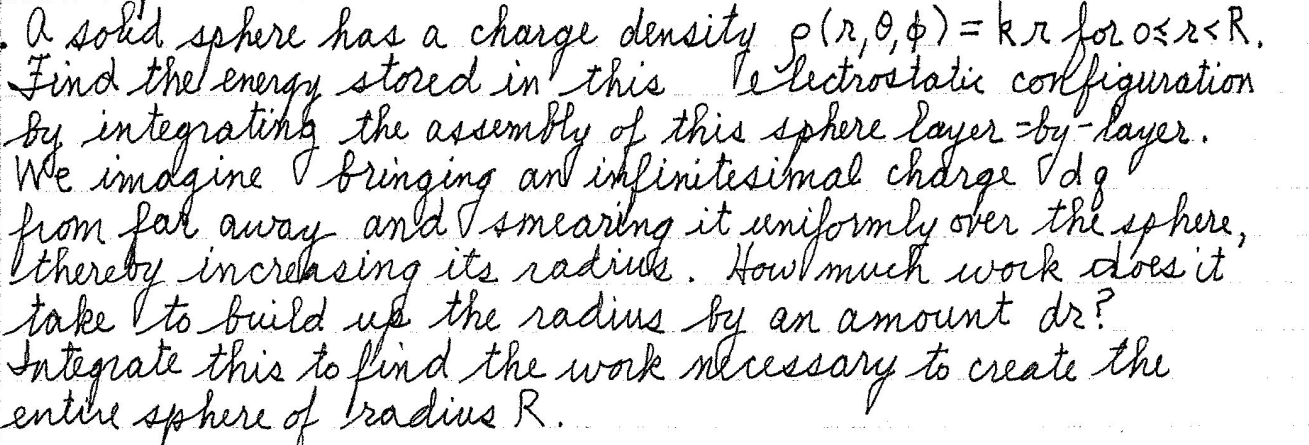 . A solid sphere has a charge density ρ(r,θ,φ) = kr for 0≤r<R.
Find the energy stored in this electrostatic configuration
by integrating the assembly of this sphere layer-by-layer.
We imagine bringing an infinitesimal charge dq
from far away and smearing it uniformly over the sphere,
thereby increasing its radius. How much work does it
take to build up the radius by an amount dr?
Integrate this to find the work necessary to create the
entire sphere of radius R.